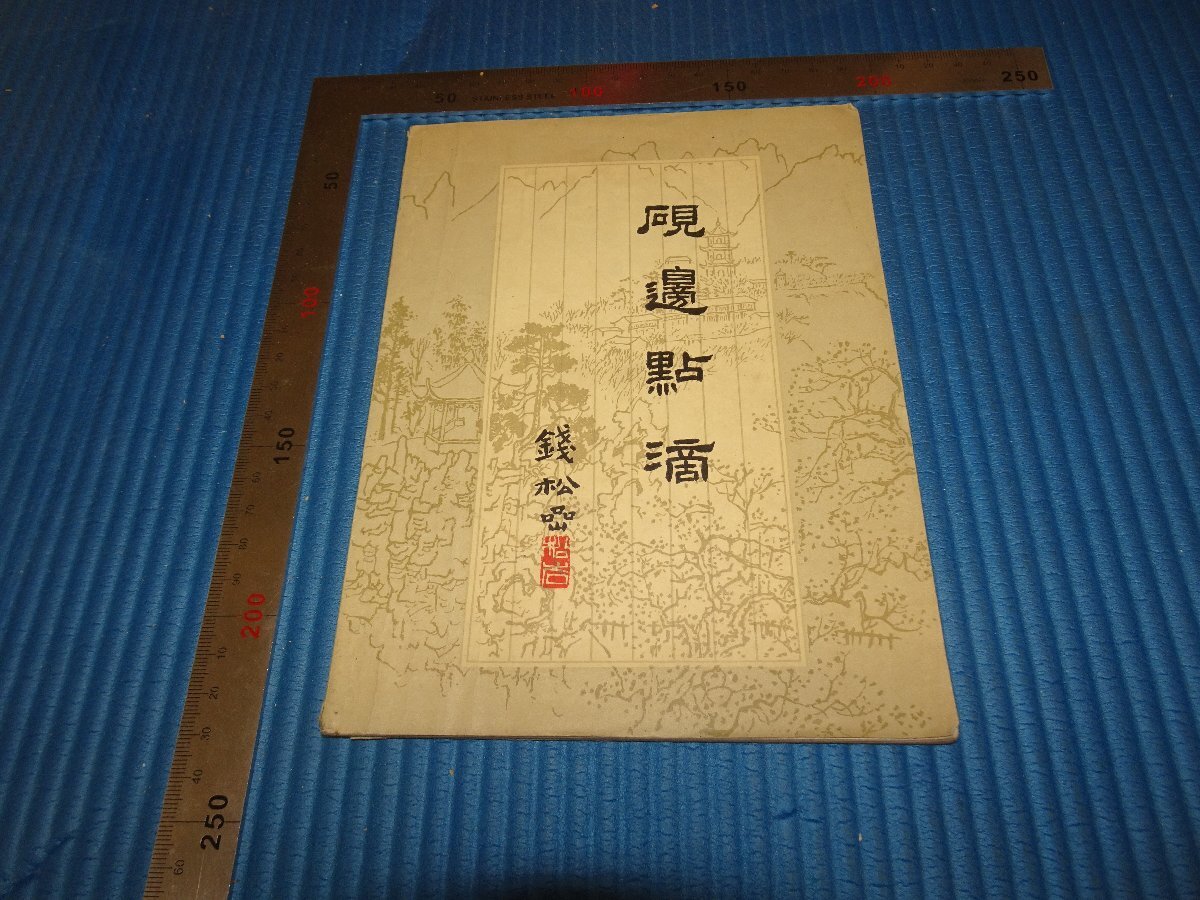 硯邊點滴
錢松喦
50 STAINLESS STEEL 100 150 200 250
50
100
150
200
250